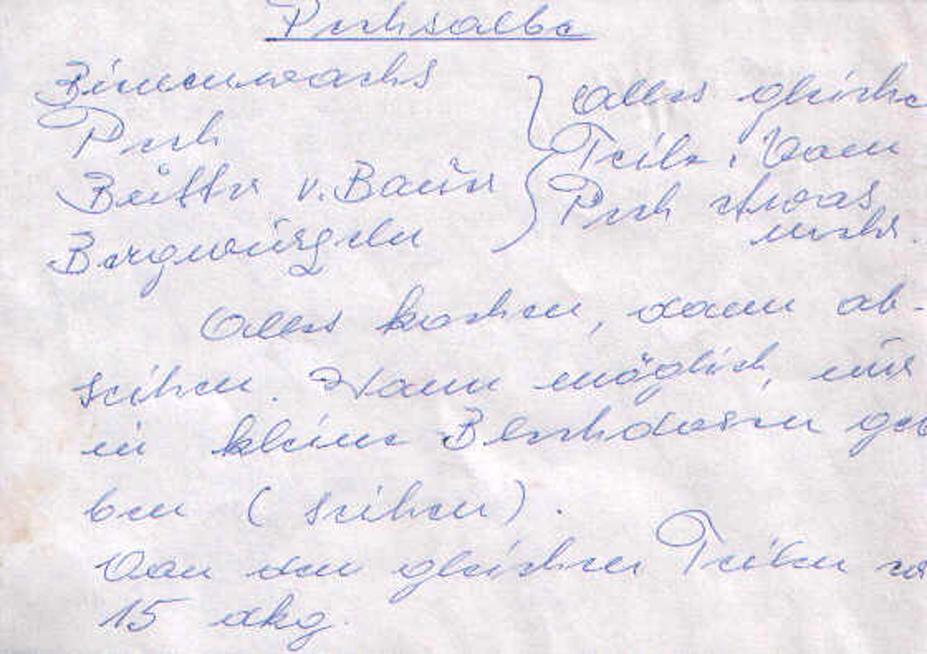 Pechsalbe
Bienenwachs
Pech
Butter v. Bauer
Bergwurzeln
Alles gleiche
Teile. Vom
Pech etwas
mehr.
Alles kochen, dann ab-
seihen. Wenn möglich, nur
in kleine Blechdosen ge
ben (seihen).
Von den gleichen Teilen
15 dkg.